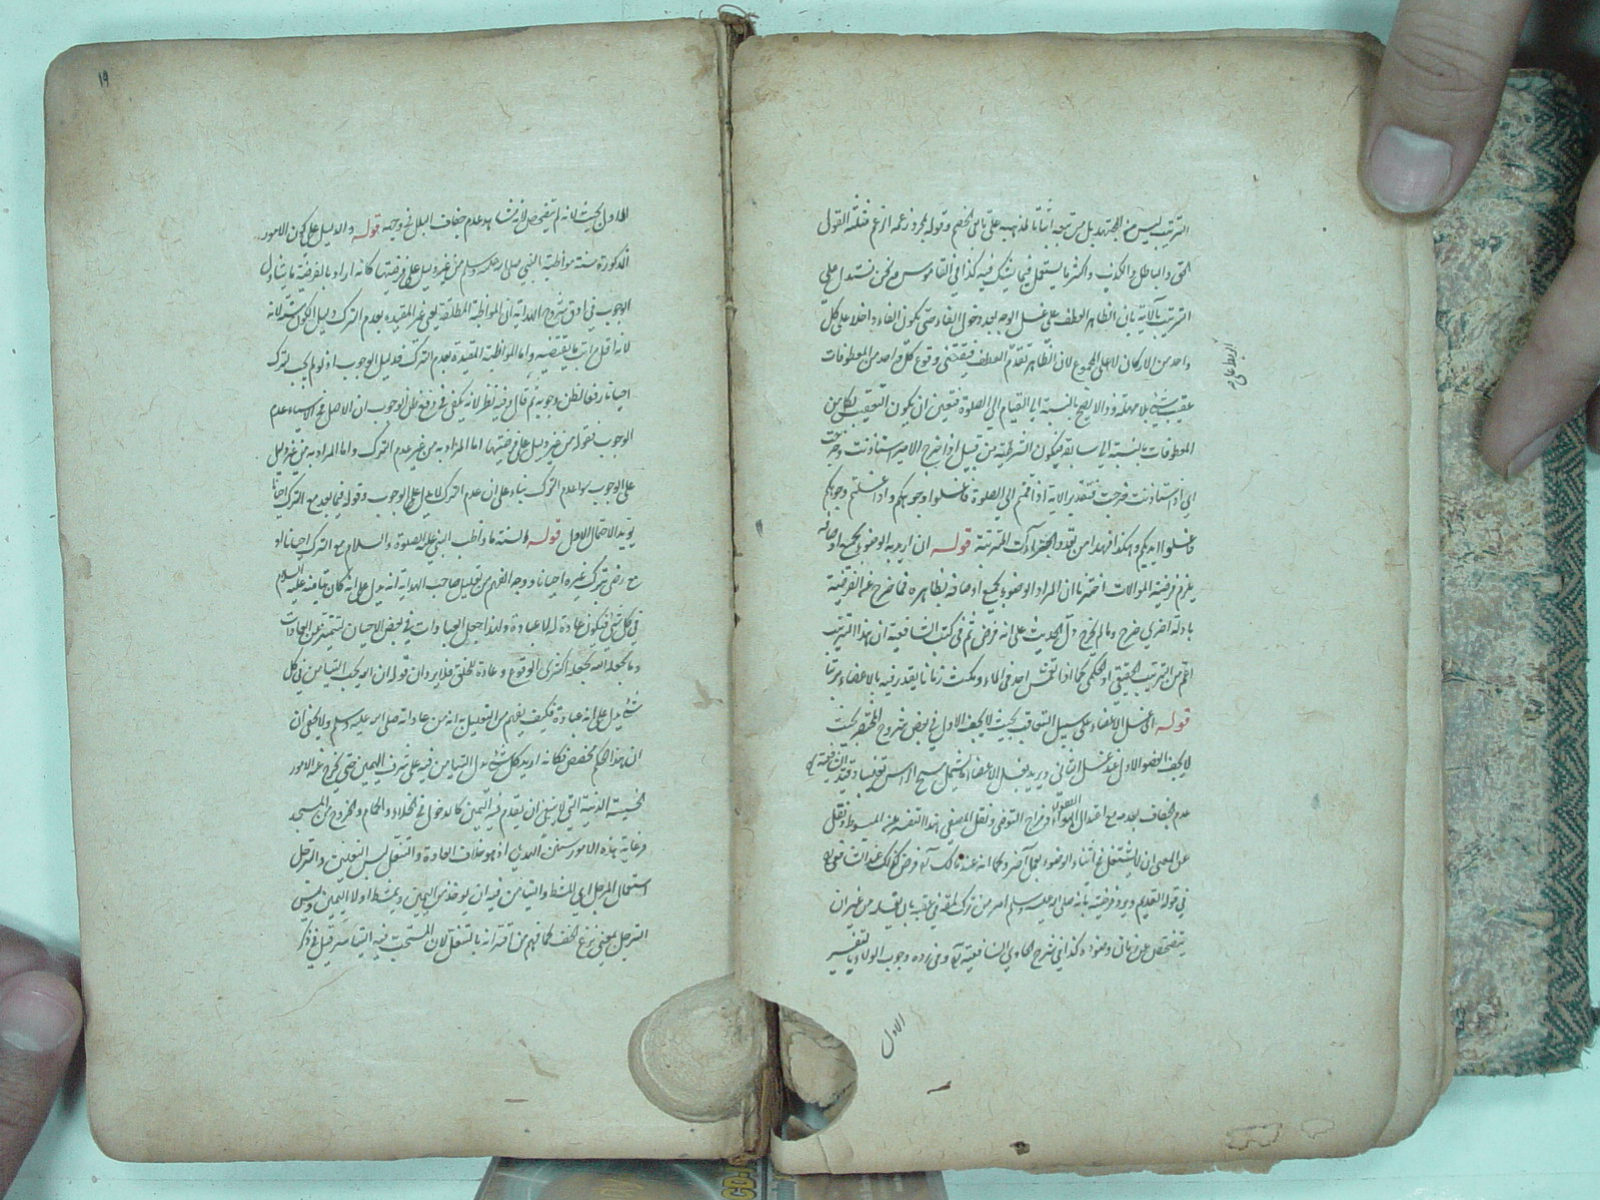 الترتيب ليس من المجتهد بل من تبعه اثباتا لمذهبه على الخصم وقوله مجرد زعمه الزعم مثلثة القول
الحق والباطل والكذب واكثر ما يستعمل فيما يشك فيه كذا في القاموس ونحن نستدل على
الترتيب بالآية بان الظاهر العطف على غسل الوجه بعد دخول الفاء حتى يكون الفاء داخلا على كل
واحد من الاركان لا على المجموع لان الظاهر تقدم العطف فيقتضي وقوع كل واحد من المعطوفات
عقيب شيء بلا مهلة وذا لا يصح بالنسبة الى القيام الى الصلوة فتعين ان يكون التعقيب لكل من
المعطوفات بالنسبة الى سابقه فيكون الشرطية من قبيل اذا خرج الامير استأذنت وخرجت
اي اذا استأذنت خرجت فتقدير الآية اذا قمتم الى الصلوة فاغسلوا وجوهكم واذا غسلتم وجوهكم
فاغسلوا ايديكم وهكذا فهذا من تعدد الجزاءات المترتبة قوله ان اريد به الوضوء بجميع اوصافه
يلزم فرضية الموالات اخترنا ان المراد الوضوء بجميع اوصافه بظاهره فما خرج عن الفرضية
بادلة اخرى خرج وما لم يخرج دل الحديث على انه فرض ثم في كتب الشافعية ان هذا الترتيب
اعم من الترتيب الحقيقي او الحكمي كما اذا انغمس احد في الماء ومكث زمانا يقدر فيه بالاعضاء مرتبا
قوله اي غسل الاعضاء على سبيل التعاقب بحيث لا يجف الاول في بعض شروح المختصر بحيث
لا يجف العضو الاول عند غسل الثاني ويريد بغسل الاعضاء ما يشمل مسح الرأس تغليبا وقيد الشافعية
عدم الجفاف بعدمه مع اعتدال الهواء ومزاج المتوضئ ونقل المصفى هذا التفسير عن المبسوط ونقل
عن المعنى ان لا يشتغل في اثناء الوضوء بعمل آخر وكما انه عند مالك فرض كذلك عند الشافعي
في قوله القديم ويرد فرضيته بانه صلى الله عليه وسلم امر من ترك لمعة في عقبه بان يغسله من غير ان
يتفحص عن زمان وضوئه كذا في شرح الحاوي للشافعية وفي رده وجوب الولاء بالتفسير
الاول
١٩
الاول بحيث لانه لم يتفحص لانه شاهد عدم جفاف البلل في وجهه قوله والدليل على كون الامور
المذكورة سنة مواظبة النبي صلى الله عليه وسلم من غير دليل على فرضيتها كانه اراد بالفرضية ما يتناول
الوجوب في ادق شروح الهداية ان المواظبة المطلقة يعني غير المقيدة بعدم الترك دليل لكون الشيء سنة لانه
لانه اقل مراتب ما يقتضيه واما المواظبة المقيدة بعدم الترك فدليل الوجوب اذ لو لم يجب لترك
احيانا رفعا لظن وجوبه ثم قال وفيه نظر لانه يكفي في دفع ظن الوجوب ان الاصل في الاشياء عدم
الوجوب فقوله من غير دليل على فرضيتها اما المراد به من غير عدم الترك واما المراد به من غير دليل
على الوجوب سوا عدم الترك بناء على ان عدم الترك لا يدل على الوجوب وقوله فيما بعد مع الترك احيانا
يؤيد الاحتمال الاول قوله والسنة ما واظب النبي عليه الصلوة والسلام مع الترك احيانا او
مع رضى بترك غيره احيانا ووجه الفهم من تعليل صاحب الهداية انه يدل على انه كان تيامنه عليه السلام
في كل شيء فيكون عادة له لا عبادة ولذا جعل العبادات في بعض الاحيان لتتميز عن العادات
وما يجعله الله يجعله اكثرى الوقوع وعادة للخلق فلا يرد ان قوله ان الله يحب التيامن في كل
شيء يدل على انه عبادة فكيف يفهم من التعليل به انه من عاداته صلى الله عليه وسلم ولا يخفى ان
ان هذا الحكم مخصص فكانه اريد كل شيء يدل التيامن فيه على شرف اليمين حتى يخرج عنه الامور
الخسيسة الدنية التي لا ينبغي ان يقدم فيه اليمين كالدخول في الخلاء والحمام والخروج من المسجد
فرعاية هذه الامور سنن الهدى اذ هو خلاف العادة والتنعل لبس النعلين والترجل
استعمال المرجل اي المشط والتيامن فيه ان يؤخذ من اليمين ويمشط اولا اليمين وليس
الترجل بمعنى نزع الخف كما فهم من انه بالتنعل لان المستحب فيه التياسر قيل في ذكر